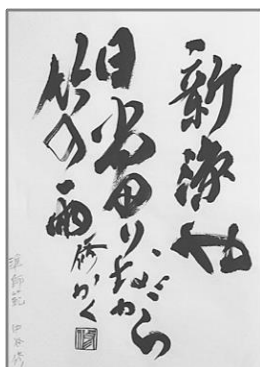 新涼や
日当りながら
竹の雨
修かく